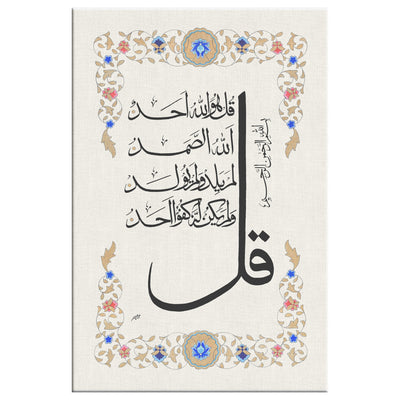 بسم الله الرحمن الرحيم
قل هو الله أحد
الله الصمد
لم يلد ولم يولد
ولم يكن له كفوا أحد
قل